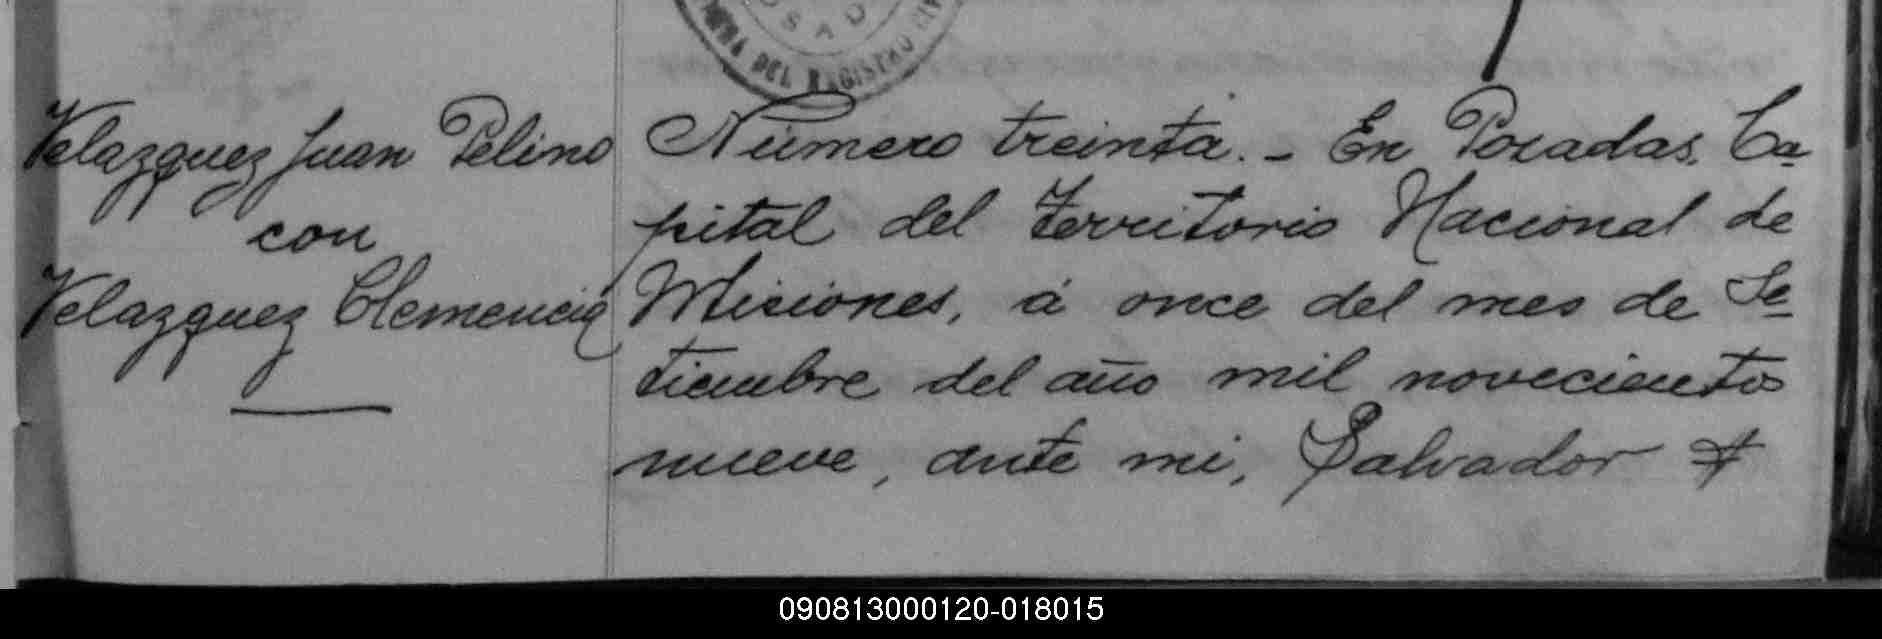 OSAD
DEL REGISTRO
Velazquez Juan Pelino
con
Velazquez Clemencia
Número treinta. - En Posadas, Ca-
pital del Territorio Nacional de
Misiones, á once del mes de Se-
tiembre del año mil novecientos
nueve, ante mi, Salvador
090813000120-018015